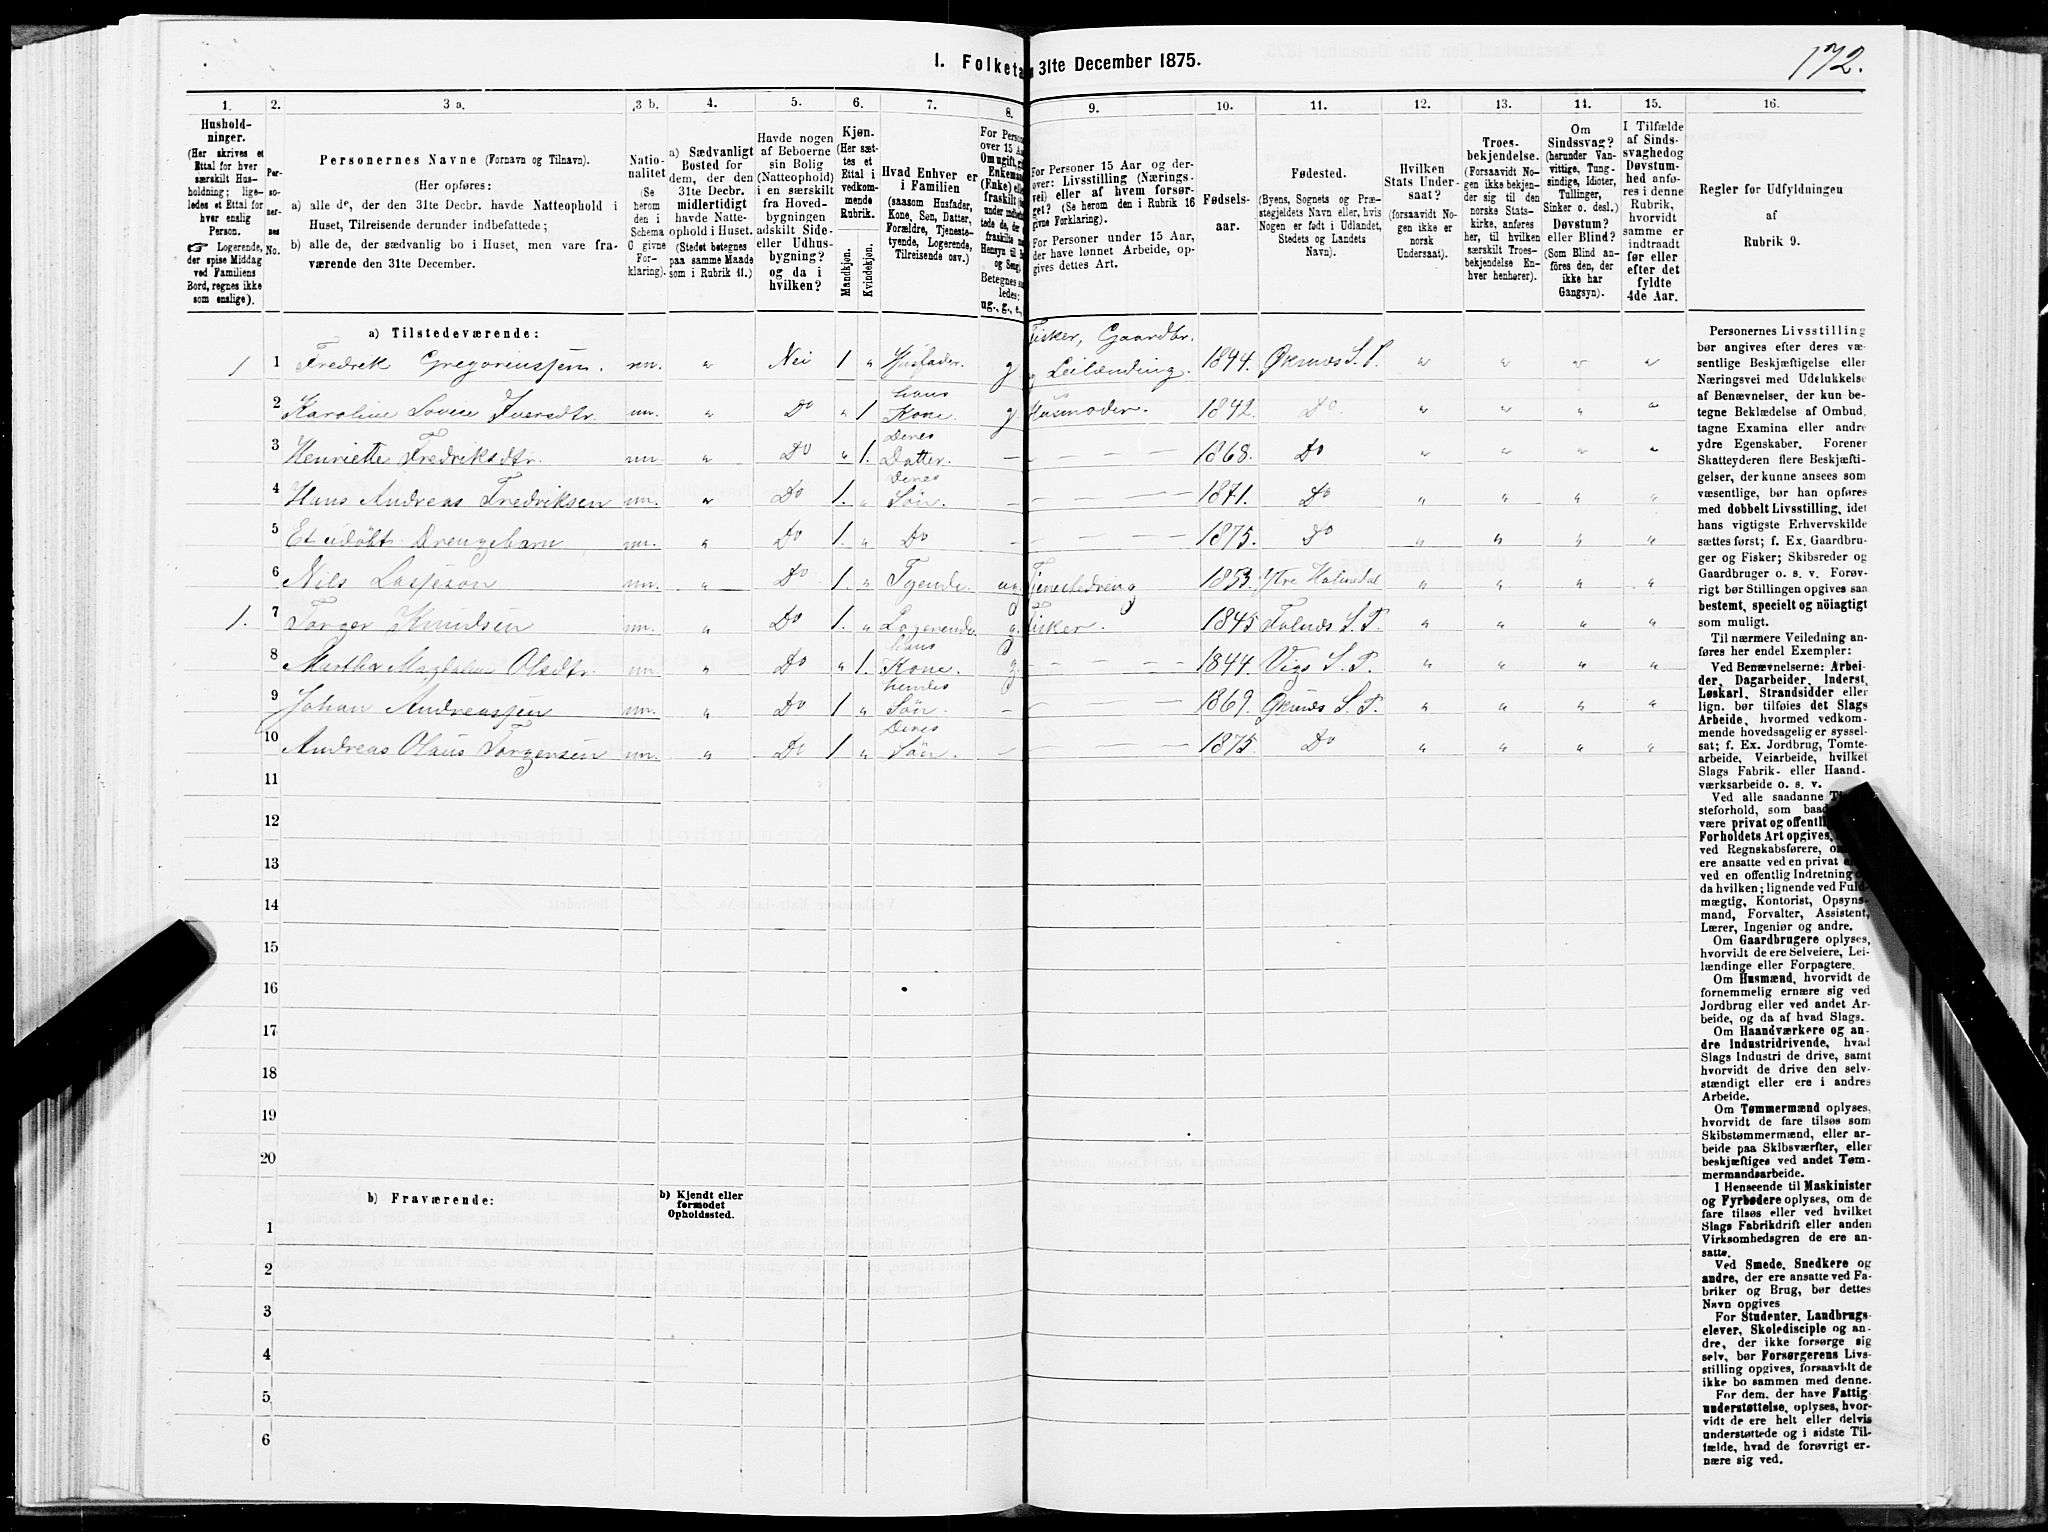 172.
1. Folketæ
31te December 1875.
1. 2. 3 a. 3 b. 4. 5. 6. 7. 8. 9. 10. 11. 12. 13. 14. 15. 16.
Hushold-
ninger.
(Her skrives et
Ettal for hver
særskilt Hus-
holdning; lige-
ledes et Ettal for
hver enslig
Person.
☞ Logerende,
der spise Middag
ved Familiens
Bord, regnes ikke
som enslige).
Per-
so-
ner-
nes
No.
Personernes Navne (Fornavn og Tilnavn).
(Her opføres:
a) alle de, der den 31te Decbr. havde Natteophold i
Huset, Tilreisende derunder indbefattede;
b) alle de, der sædvanlig bo i Huset, men vare fra-
værende den 31te December.
Natio-
nalitet
(Se
herom
den i
Schema
O givne
For-
klaring).
a) Sædvanligt
Bosted for
dem, der den
31te Decbr.
midlertidigt
havde Natte-
ophold i Huset.
(Stedet betegnes
paa samme Maade
som i Rubrik 11.)
Havde nogen
af Beboerne
sin Bolig
(Natteophold)
i en særskilt
fra Hoved-
bygningen
adskilt Side-
eller Udhus-
bygning?
og da i
hvilken?
Kjøn.
(Her sæt-
tes et
Ettal i
vedkom-
mende
Rubrik.
Mandkjøn.
Kvindekjøn.
Hvad Enhver er
i Familien
(saasom Husfader,
Kone, Søn, Datter,
Forældre, Tjeneste-
tyende, Logerende,
Tilreisende osv.)
For Person
over 15 Aar
Omugift, gi
Enkemand
(Enke) elle
fraskilt
Betegnes sa
ledes:
ug., g., e.,
For Personer 15 Aar og der-
over: Livsstilling (Nærings-
vei) eller af hvem forsør-
get? (Se herom den i Rubrik 16
givne Forklaring).
For Personer under 15 Aar,
der have lønnet Arbeide, op-
gives dettes Art.
Fødsels-
aar.
Fødested.
(Byens, Sognets og Præ-
stegjeldets Navn eller, hvis
Nogen er født i Udlandet,
Stedets og Landets
Navn).
Hvilken
Stats Under-
saat?
(forsaavidt No-
gen ikke er
norsk
Undersaat).
Troes-
bekjendelse.
(Forsaavidt No-
gen ikke bekjen-
der sig til den
norske Stats-
kirke, anføres
her, til hvilken
særskilt Troes-
bekjendelse En-
hver henhører).
Om
Sindssvag?
(herunder Van-
vittige, Tung-
sindige, Idioter,
Tullinger,
Sinker o. desl.)
Døvstum?
eller Blind?
(Som Blind an-
føres den, der
ikke har
Gangsyn).
I Tilfælde
af Sinds-
svaghedog
Døvstum-
hed anfø-
res i denne
Rubrik,
hvorvidt
samme er
indtraadt
før eller
efter det
fyldte
4de Aar.
Regler for Udfyldningen
af
Rubrik 9.
a) Tilstedeværende:
1 1 Fredrek Gregoriussen nn. " Nei 1 " Husfader. g Fisker, Gaardbr. og Leilænding. 1844. Øksnes S. P. " " " "
2 Karoline Lovise Iversdtr. nn. " Do " 1 hans Kone. g. Husmoder. 1842. Do. " " " "
3 Henriette Fredriksdtr. nn. " Do " 1. Deres Datter. — 1868. Do " " " "
4 Hans Andreas Fredriksen nn. " Do 1. " Deres Søn. — 1871. Do " " " "
5 Et udøbt Drengebarn nn. " Do 1. " Do — 1875. Do " " " "
6 Nils Lassesøn nn. " Do 1. " Tyende. ug. Tjenestedreng 1853. Ytre " " " "
1. 7 Torger Knudsen nn. " Do 1. " Logerende. g. Fisker. 1845 S. P. " " " "
8 Martha Magdalena Olsdtr. nn. " Do " 1. hans Kone. g. 1844. Vigs S. P. " " " "
9 Johan Andreassen nn. " Do 1 " hendes Søn. — 1869. Øksnes S. P. " " " "
10 Andreas Olaus Torgersen nn. " Do 1 " Deres Søn. — 1875. Do " " " "
11
12
13
14
15
16
17
18
19
20
b) Fraværende:
b) Kjendt eller
formodet
Opholdssted.
1
2
3
4
5
6
Personernes Livsstilling
bør angives efter deres væ-
sentlige Beskjæftigelse eller
Næringsvei med Udelukkelse
af Benævnelser, der kun be-
tegne Beklædelse af Ombud,
tagne Examina eller andre
ydre Egenskaber. Forener
Skatteyderen flere Beskjæfti-
gelser, der kunne ansees som
væsentlige, bør han opføres
med dobbelt Livsstilling, idet
hans vigtigste Erhvervskilde
sættes først; f. Ex. Gaardbru-
ger og Fisker; Skibsreder og
Gaardbruger o. s. v. Forøv-
rigt bør Stillingen opgives saa
bestemt, specielt og nöiagtigt
som muligt.
Til nærmere Veiledning an-
føres her endel Exempler:
Ved Benævnelserne: Arbei-
der, Dagarbeider, Inderst,
Løskarl, Strandsidder eller
lign. bør tilføies det Slags
Arbeide, hvormed vedkom-
mende hovedsagelig er syssel-
sat; f. Ex. Jordbrug, Tomte-
arbeide, Veiarbeide, hvilket
Slags Fabrik- eller Haand-
værksarbeide o. s. v.
Ved alle saadanne
steforhold, som baa
være privat og offentl
Forholdets Art opgives,
ved Regnskabsførere, o
ere ansatte ved en privat
ved en offentlig Indretning
da hvilken; lignende ved Fuld-
mægtig, Kontorist, Opsyns-
mand, Forvalter, Assistent,
Lærer, Ingeniør og andre.
Om Gaardbrugere oplyses,
hvorvidt de ere Selveiere, Lei-
lændinge eller Forpagtere.
Om Husmænd, hvorvidt de
fornemmelig ernære sig ved
Jordbrug eller ved andet Ar-
beide, og da af hvad Slags.
Om Haandværkere og an-
dre Industridrivende, hvad
Slags Industri de drive, samt
hvorvidt de drive den selv-
stændigt eller ere i andres
Arbeide.
Om Tømmermænd oplyses,
hvorvidt de fare tilsøs som
Skibstømmermænd, eller ar-
beide paa Skibsværfter, eller
beskjæftiges ved andet Tøm-
mermandsarbeide.
I Henseende til Maskinister
og Fyrbødere oplyses, om de
fare tilsøs eller ved hvilket
Slags Fabrikdrift eller anden
Virksomhedsgren de ere an-
satte.
Ved Smede, Snedkere og
andre, der ere ansatte ved Fa-
briker og Brug, bør dettes
Navn opgives
For Studenter, Landbrugs-
elever, Skoledisciple og an-
dre, der ikke forsørge sig
selv, bør Forsørgerens Livs-
stilling opgives, forsaavidt de
ikke bo sammen med denne.
For dem, der have Fattig-
understøttelse, oplyses, hvor-
vidt de ere helt eller delvis
understøttede og i sidste Til-
fælde, hvad de forøvrigt er-
nære sig ved.